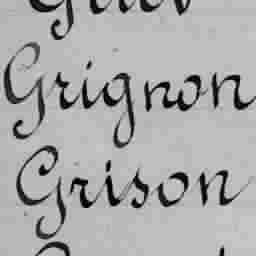 Grignon
Grison